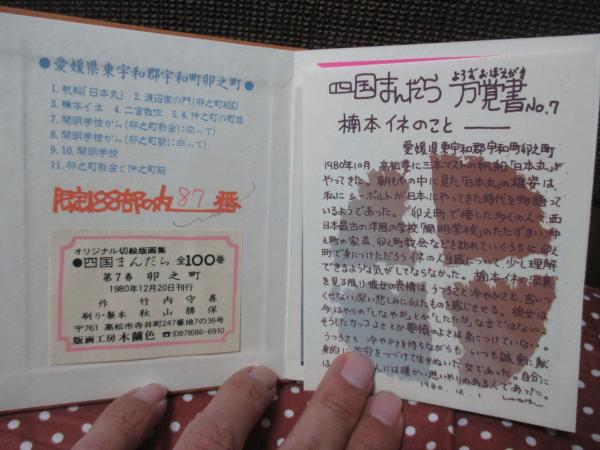 ●愛媛県東宇和郡宇和町卯之町●
1.帆船「日本丸」 2.渡辺家の門(卯之町8区)
3.楠本イネ 4.二宮敬作 5.6.仲之町の町並
7.開明学校から(卯之町教会に向って)
8.開明学校から(卯之町駅に向って)
9.10.開明学校
11.卯之町教会と仲之町筋
限定188部の内 87 番
オリジナル切絵版画集
●四国まんだら 全100巻
第7巻 卯之町
1980年12月20日刊行
作 竹内守善
刷り・製本 秋山勝保
〒761 高松市寺井町247番地7の36号
版画工房木蘭色 ☎(0878)86-6910
四国まんだら よろずおぼえがき 万覚書 No.7
楠本イネのこと ――
愛媛県東宇和郡宇和町卯之町
1980年10月、高松港に三本マストの帆船「日本丸」が
やってきた。朝もやの中に見た「日本丸」の雄姿は、
私にシーボルトが日本にやってきた時代を物語って
いるようであった。卯之町で接した多くの人々、西
日本最古の洋風の学校「開明学校」のたたずまい、仲
之町の家並、卯之町教会などを訪れていくうちに、卯之
町で身につけただろうイネの人生観について少し理解
できるような気がしてならなかった。楠本イネの写真
を見る限り彼女の表情は、うつろさと冷やかさと、言いつ
くせない深い悲しみに似たものを感じさせる。彼女は
今はやりの「しなやか」とか「したたか」な女ではない。
そうしたカッコよさとか要領のよさは身につけていない。
うつろさ、冷やかさを持ちながらも、いつも誠実に献
身的に
1980.12.1